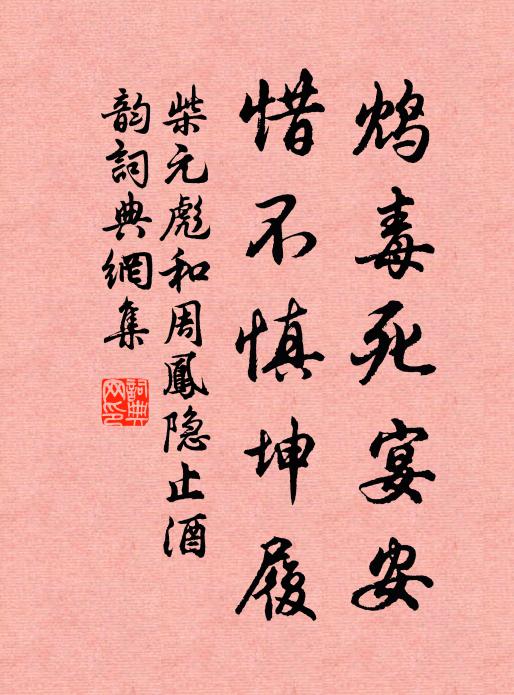 鸩毒死宴安
惜不慎坤履
柴元彪和周鳳隐止酒
韵詞典網集
詞典
网印